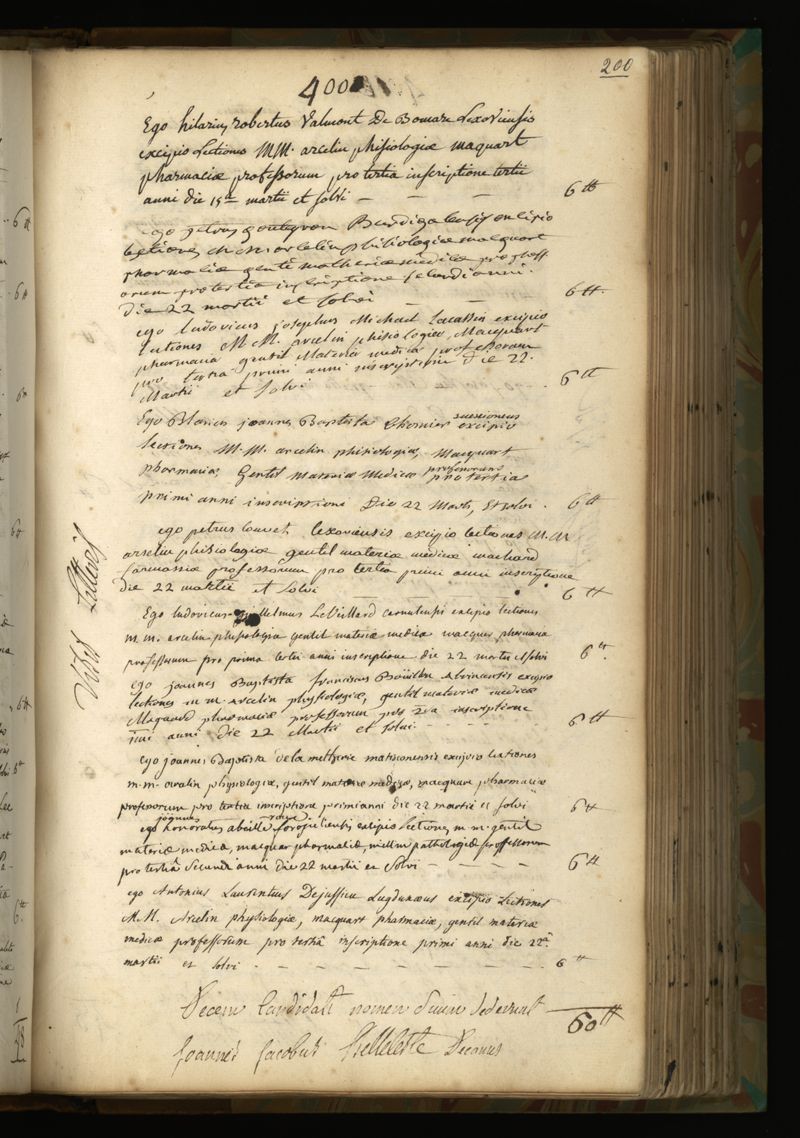 200
400
Ego hilarius robertus Valmont De Bomare Lexoviensis
excipio Lectiones MM. arcelin phisiologiæ maquart
pharmaciæ professorum pro tertia inscriptione tertii
anni die 15a martii et solvi — — — 6 ₶
ego petrus
lectiones M M arcelin phisiologiæ macquart
pharmaciæ gentil matheriæ medicæ profess
orum pro tertia inscriptione secundi anni.
Die 22 martii et solvi — — — 6 ₶.
ego ludovicus josephus Michael Lacassin excipio
lectiones M M. arcelin phisiologiæ, Macquart
pharmacia gentil Materia medica professorum
pro tertia primi anni inscriptione die 22.
Martii et solvi . 6 ₶
Ego Blasius joannes Baptista suessioneus
excipio
lectiones M. M. arcelin phisiologiæ, Macquart
pharmaciæ, Gentil Materiæ Medicæ professorum
pro tertia
primi anni inscriptioni Die 22 Martii, Et solvi . 6 ₶
ego petrus louvet lexoviensis excipio lectiones M. M
arselin phisiologiæ gentil materiæ medicæ
farmassiæ professorum pro tertia primi anni inscriptione
die 22 martii et solvi 6 ₶
Ego ludovicus Guillelmus LeVeillard excipio lectiones
m. m. arcelin phisiologia gentil materiæ medica macquer pharmacia
professorum pro prima tertii anni inscriptione die 22 martii et solvi 6 ₶.
ego joannes Baptista franciscus excipio
lectiones m m arcelin physiologiæ, gentil materiæ medicæ
pharmaciæ professorum pro 2da inscriptione
anni die 22 Martii et solvi . - - - 6 ₶
Ego joannes Baptista de la metherie matisconensis excipio lectiones
m. m. arcelin physiologiæ, gentil materiæ medicæ, macquart pharmaciæ
professorum pro tertia inscriptione primi anni die 22 martii et solvi 6 ₶
joannes
ego honoratus abeille excipio lectiones m. m. gentil
materiæ medicæ, macquar pharmaciæ, millin pathologiæ professorum
pro tertiâ secundi anni die 22 martii et solvi — — — — 6 ₶
ego Antonius Laurentius Dejussieu Lugdunæus excipio Lectiones
M. M. Arcelin physiologiæ, macquart pharmaciæ, gentil materiæ
medicæ professorum pro tertiâ inscriptione primi anni die 22a.
martii et solvi . — — — — — — — 6 ₶
Decem Candidati nomen suum dederunt 60 ₶
Joannes Jacobus Belleteste Decanus